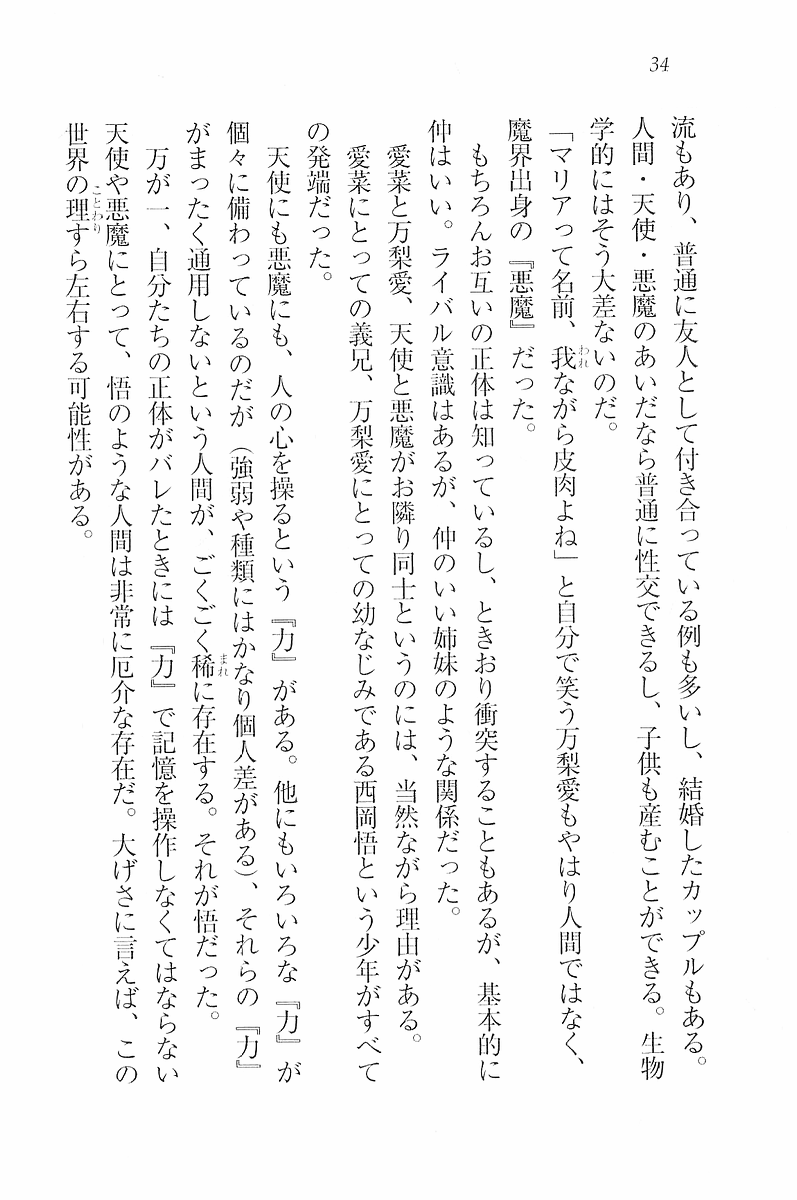 34
流もあり、普通に友人として付き合っている例も多いし、結婚したカップルもある。
人間・天使・悪魔のあいだなら普通に性交できるし、子供も産むことができる。生物
学的にはそう大差ないのだ。
「マリアって名前、我ながら皮肉よね」と自分で笑う万梨愛もやはり人間ではなく、
われ
魔界出身の『悪魔』だった。
もちろんお互いの正体は知っているし、ときおり衝突することもあるが、基本的に
仲はいい。ライバル意識はあるが、仲のいい姉妹のような関係だった。
愛菜と万梨愛、天使と悪魔がお隣り同士というのには、当然ながら理由がある。
愛菜にとっての義兄、万梨愛にとっての幼なじみである西岡悟という少年がすべて
の発端だった。
天使にも悪魔にも、人の心を操るという『力』がある。他にもいろいろな『力』が
個々に備わっているのだが（強弱や種類にはかなり個人差がある）、それらの『力』
がまったく通用しないという人間が、ごくごく稀に存在する。それが悟だった。
まれ
万が一、自分たちの正体がバレたときには『力』で記憶を操作しなくてはならない
天使や悪魔にとって、悟のような人間は非常に厄介な存在だ。大げさに言えば、この
世界の理すら左右する可能性がある。
ことわり